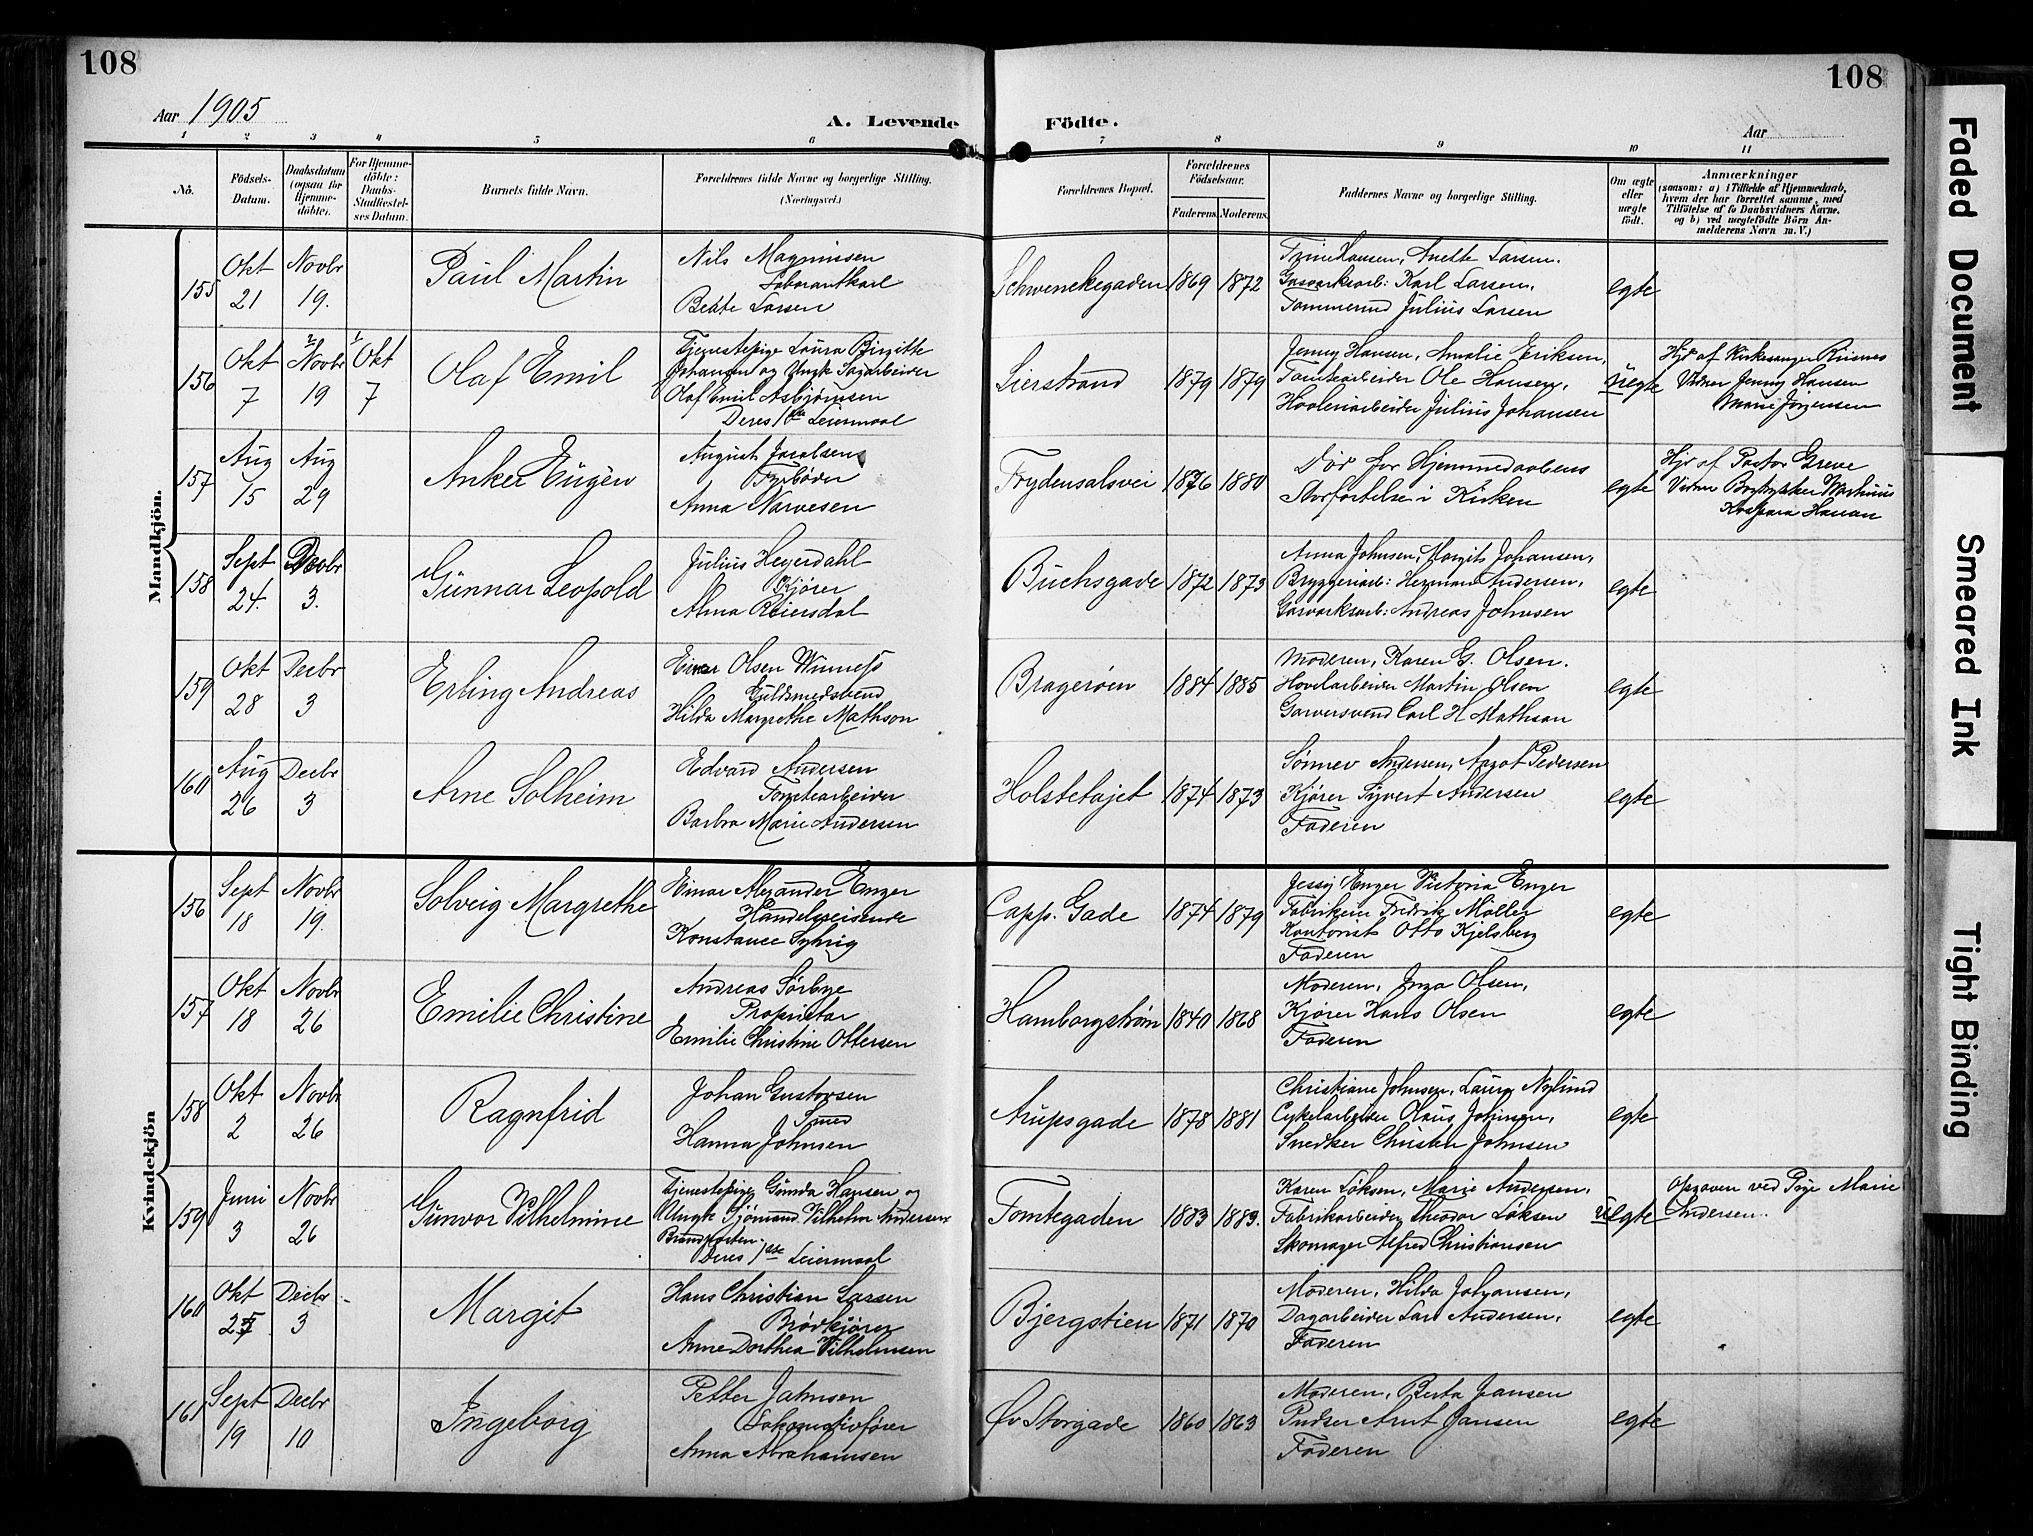 108
108
Aar 1905
A. Levende
Födte.
Aar
1 2 3 4 5 6 7 8 9 10 11
No.
Födsels-
Datum.
Daabsdatum
(ogsaa for
Hjemme-
döbte).
For Hjemme-
döbte:
Daabs-
Stadfæstel-
ses Datum.
Barnets fulde Navn.
Forældrenes fulde Navne og borgerlige Stilling.
(Næringsvei.)
Forældrenes Bopæl.
Forældrenes
Födselsaar.
Faderens. Moderens.
Faddernes Navne og borgerlige Stilling.
Om ægte
eller
uægte
födt.
Anmærkninger
(saasom: a) i Tilfælde af Hjemmedaab,
hvem der har forrettet samme, med
Tilföielse af to Daabsvidners Navne,
og b) ved uægtefödte Börn An-
melderens Navn m. V.)
Mandkjön.
155
Okt
21
Novbr
19.
Paul Martin
Nils Magnussen
Laborantkarl
Beate Larsen
Schwenckegaden 1869 1872
Trine Hansen, Anette Larsen.
Gasverksarb: Karl Larsen,
Tømmermd Julius Larsen
egte
156
Okt
7
2
Novbr
19
1
Okt
7
Olaf Emil
Tjenestepige Laura Birgitte
Johansen og Ungk Sagarbeider
Olaf Emil Asbjørnsen
Deres 1ste Leiermaal
Lierstrand 1879 1879
Jenny Hansen, Amalie Eriksen,
Tomtearbeider Ole Hansen,
Høvleriarbeider Julius Johansen
uegte
Hjd af Kirkesanger Riisnes
Vidner Jenny Hansen
Marie Jørgensen
157
Aug
15
Aug
29
Anker Eugen
August Jacobsen
Fyrbøder
Anna Narvesen
Frydensalsvei 1876 1880
Død før Hjemmedaabens
Stadfestelse i Kirken
egte
Hjd af Pastor Greve
Vidner Martinius
Hansen
158
Sept
24.
Decbr
3.
Gunnar Leopold
Julius Heyerdahl
Kjører
Anna Reiersdal
Buchsgade 1872 1873
Anna Johnsen, Margit Johansen,
Bryggeriarb: Herman Andersen,
Gasverksarb: Andreas Johnsen
egte
159
Okt
28
Decbr
3
Erling Andreas
Einar Olsen Winness
Guldsmedsvend
Hilda Margrethe Mathson
Bragerøen 1884 1885
Moderen, Karen G. Olsen.
Høvelarbeider Martin Olsen
Garversvend Carl H Mathson
egte
160
Aug
26
Decbr
3
Arne Solheim
Edvard Andersen
Tomtearbeider
Barbra Marie Andersen
Holsteløjet 1874 1873
Sønnev Andersen, Aagot Pedersen
Kjører Syvert Andersen
Faderen
egte
Kvindekjön
156
Sept
18
Novbr
19.
Solveig Margrethe
Einar Alexander Enger
Handelsreisende
Konstance Sylvig
Capp. Gade 1874 1879
Jessy Enger Victoria Enger
Fabrikeier Fredrik Møller
Kontorist Otto Kjelsberg
Faderen
egte
157
Okt
18
Novbr
26
Emilie Christine
Andreas Sørbye
Proprietær
Emilie Christine Ottersen
Hamborgstrøm 1840 1868
Moderen, Inga Olsen,
Kjører Hans Olsen
Faderen
egte
158
Okt
2
Novbr
26
Ragnfrid
Johan Gustavsen
Smed
Hanna Johnsen
Arupsgade 1878 1881
Christiane Johnsen, Laura Nylund
Cykelarbeider Olaus Johnsen,
Snedker Christian Johnsen
egte
159
Juni
3
Novbr
26
Gunvor Vilhelmine
Tjenestepige Gunda Hansen og
Ungk Sjømand Vilhelm Andersen
Brandposten.
Deres 1ste Leiermaal
Tomtegaden 1883 1883.
Karen Løksen, Marie Andersen,
Fabrikarbeider Theodor Løksen
Skomager Alfred Christiansen
uegte
Opgaven ved Pige Marie
Andersen.
160
Okt
25
Decbr
3
Margit
Hans Christian Larsen
Brødkjører
Anne Dorthea Vilhelmsen
Bjergstien 1871 1870
Moderen, Hilda Johansen,
Dagarbeider Lars Andersen,
Faderen
egte
161
Sept
19
Decbr
10
Ingeborg
Petter Jahnsen
Lokomotivfører
Anna Abrahamsen
Øv Storgade 1860 1863
Moderen, Berta Jansen
Pudser Arnt Jansen
Faderen
egte
Faded Document
Smeared Ink
Tight Binding